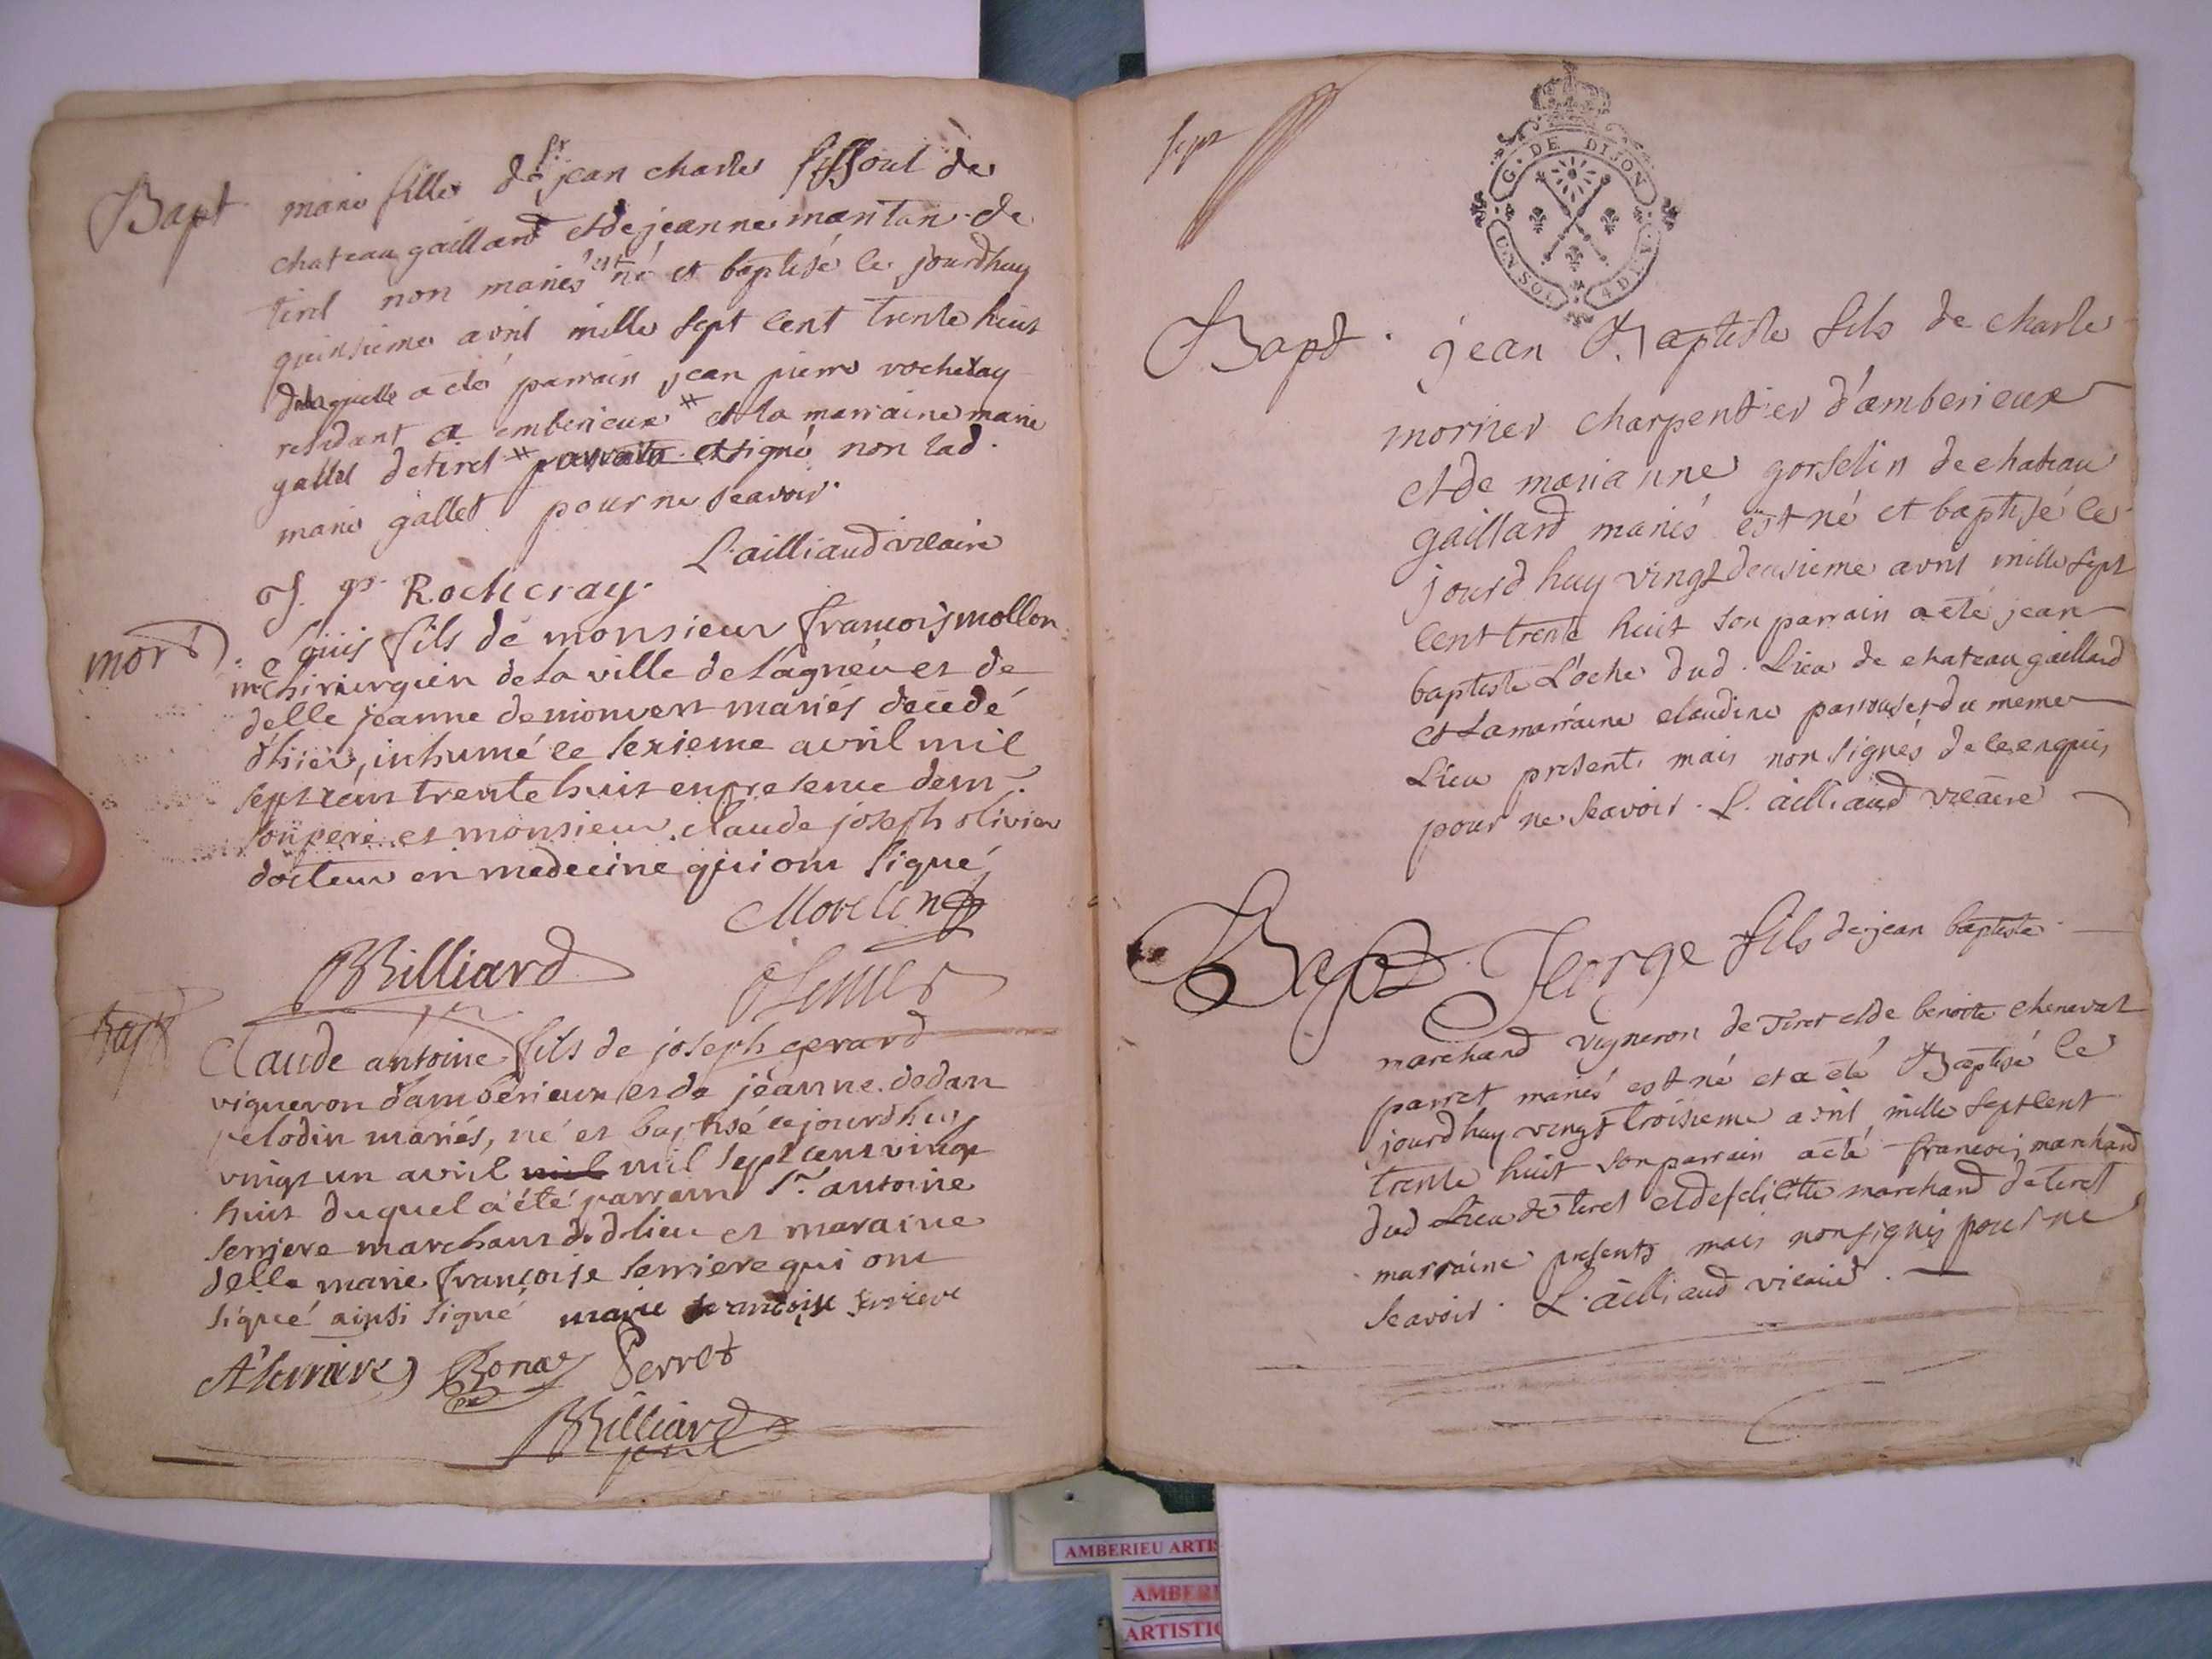 Bapt marie fille de sr jean charles de
chateau gaillard et de jeanne mantan de
tiret non mariés est né et baptisé le jourdhuy
quinsieme avril mille sept cent trente huit
de laquelle a eté parrain jean pierre rocheray
residant a emberieux # et la marraine marie
gallet de tiret # et signé non lad.
marie gallet pour ne scavoir.
L. ailliaud vicaire
J. pr. Rocheray.
mort. Louis fils de monsieur françois mollon
mre chirurgien de la ville de lagneu et de
delle jeanne demonvert mariés decedé
d'hier, inhumé ce sexieme avril mil
sept cens trente huit en presence dem.
son pere et monsieur claude joseph olivier
docteur en medecine qui ont signé
BBilliard
bapt
Claude antoine fils de joseph gerard
vigneron d'ambérieux et de jeanne dedan
pelodin mariés, né et baptisé cejourdhuy
vingt un avril mil mil sept cens vingt
huit duquel a été parrain Sr. antoine
serriere marchant dud lieu et maraine
delle marie françoise serriere qui ont
signé ainsi signé marie francoise serriere
A serriere Bona Perret
BBilliard
sept
G. DE DIJON
UN SOL 4 DEN.
Bapt. jean Baptiste fils de charle
mornier charpentier d'amberieux
et de marianne gorselin de chateau
gaillard mariés est né et baptisé le
jourd huy vingt deusieme avril mille sept
cent trente huit son parrain a eté jean
baptiste Loche dud. Lieu de chateau gaillard
et La marraine claudine du meme
Lieu presents mais non signés de ce enquis
pour ne scavoir. L. ailliaud vicaire
Bapt. Jeorge fils de jean baptiste
marchand vigneron de Tiret et de benoite chenavat
parret mariés est né et a eté Baptisé le
jourd huy vingt troisieme avril mille sept cent
trente huit son parrain a eté francois marchand
dud Lieu de tiret et de felicitte marchand de tiret
marraine presents mais non signés pour ne
scavoir. L. ailliaud vicaire.
AMBERIEU ARTIS
AMBERI
ARTISTIQ